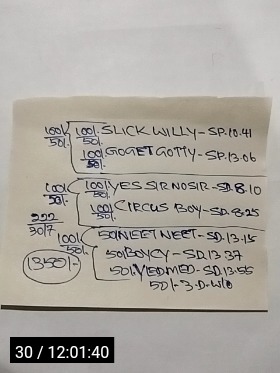 100/- 100/- SLICK WILLY - SP.10.41
50/- 50/-
100/- GOGET GOTTY - SP.13.06
50/-
100/- 100/- YES SIR NO SIR - SD.8.10
50/- 50/-
100/- CIRCUS BOY - SD.8.25
50/-
222
30/7
100/- 50/ NEET NEET - SD.13.15
50/-
50/ BOYCY - SD.13 37
1350/- 50/ - SD.13.55
50/- 3.D.W/O
30 / 12:01:40